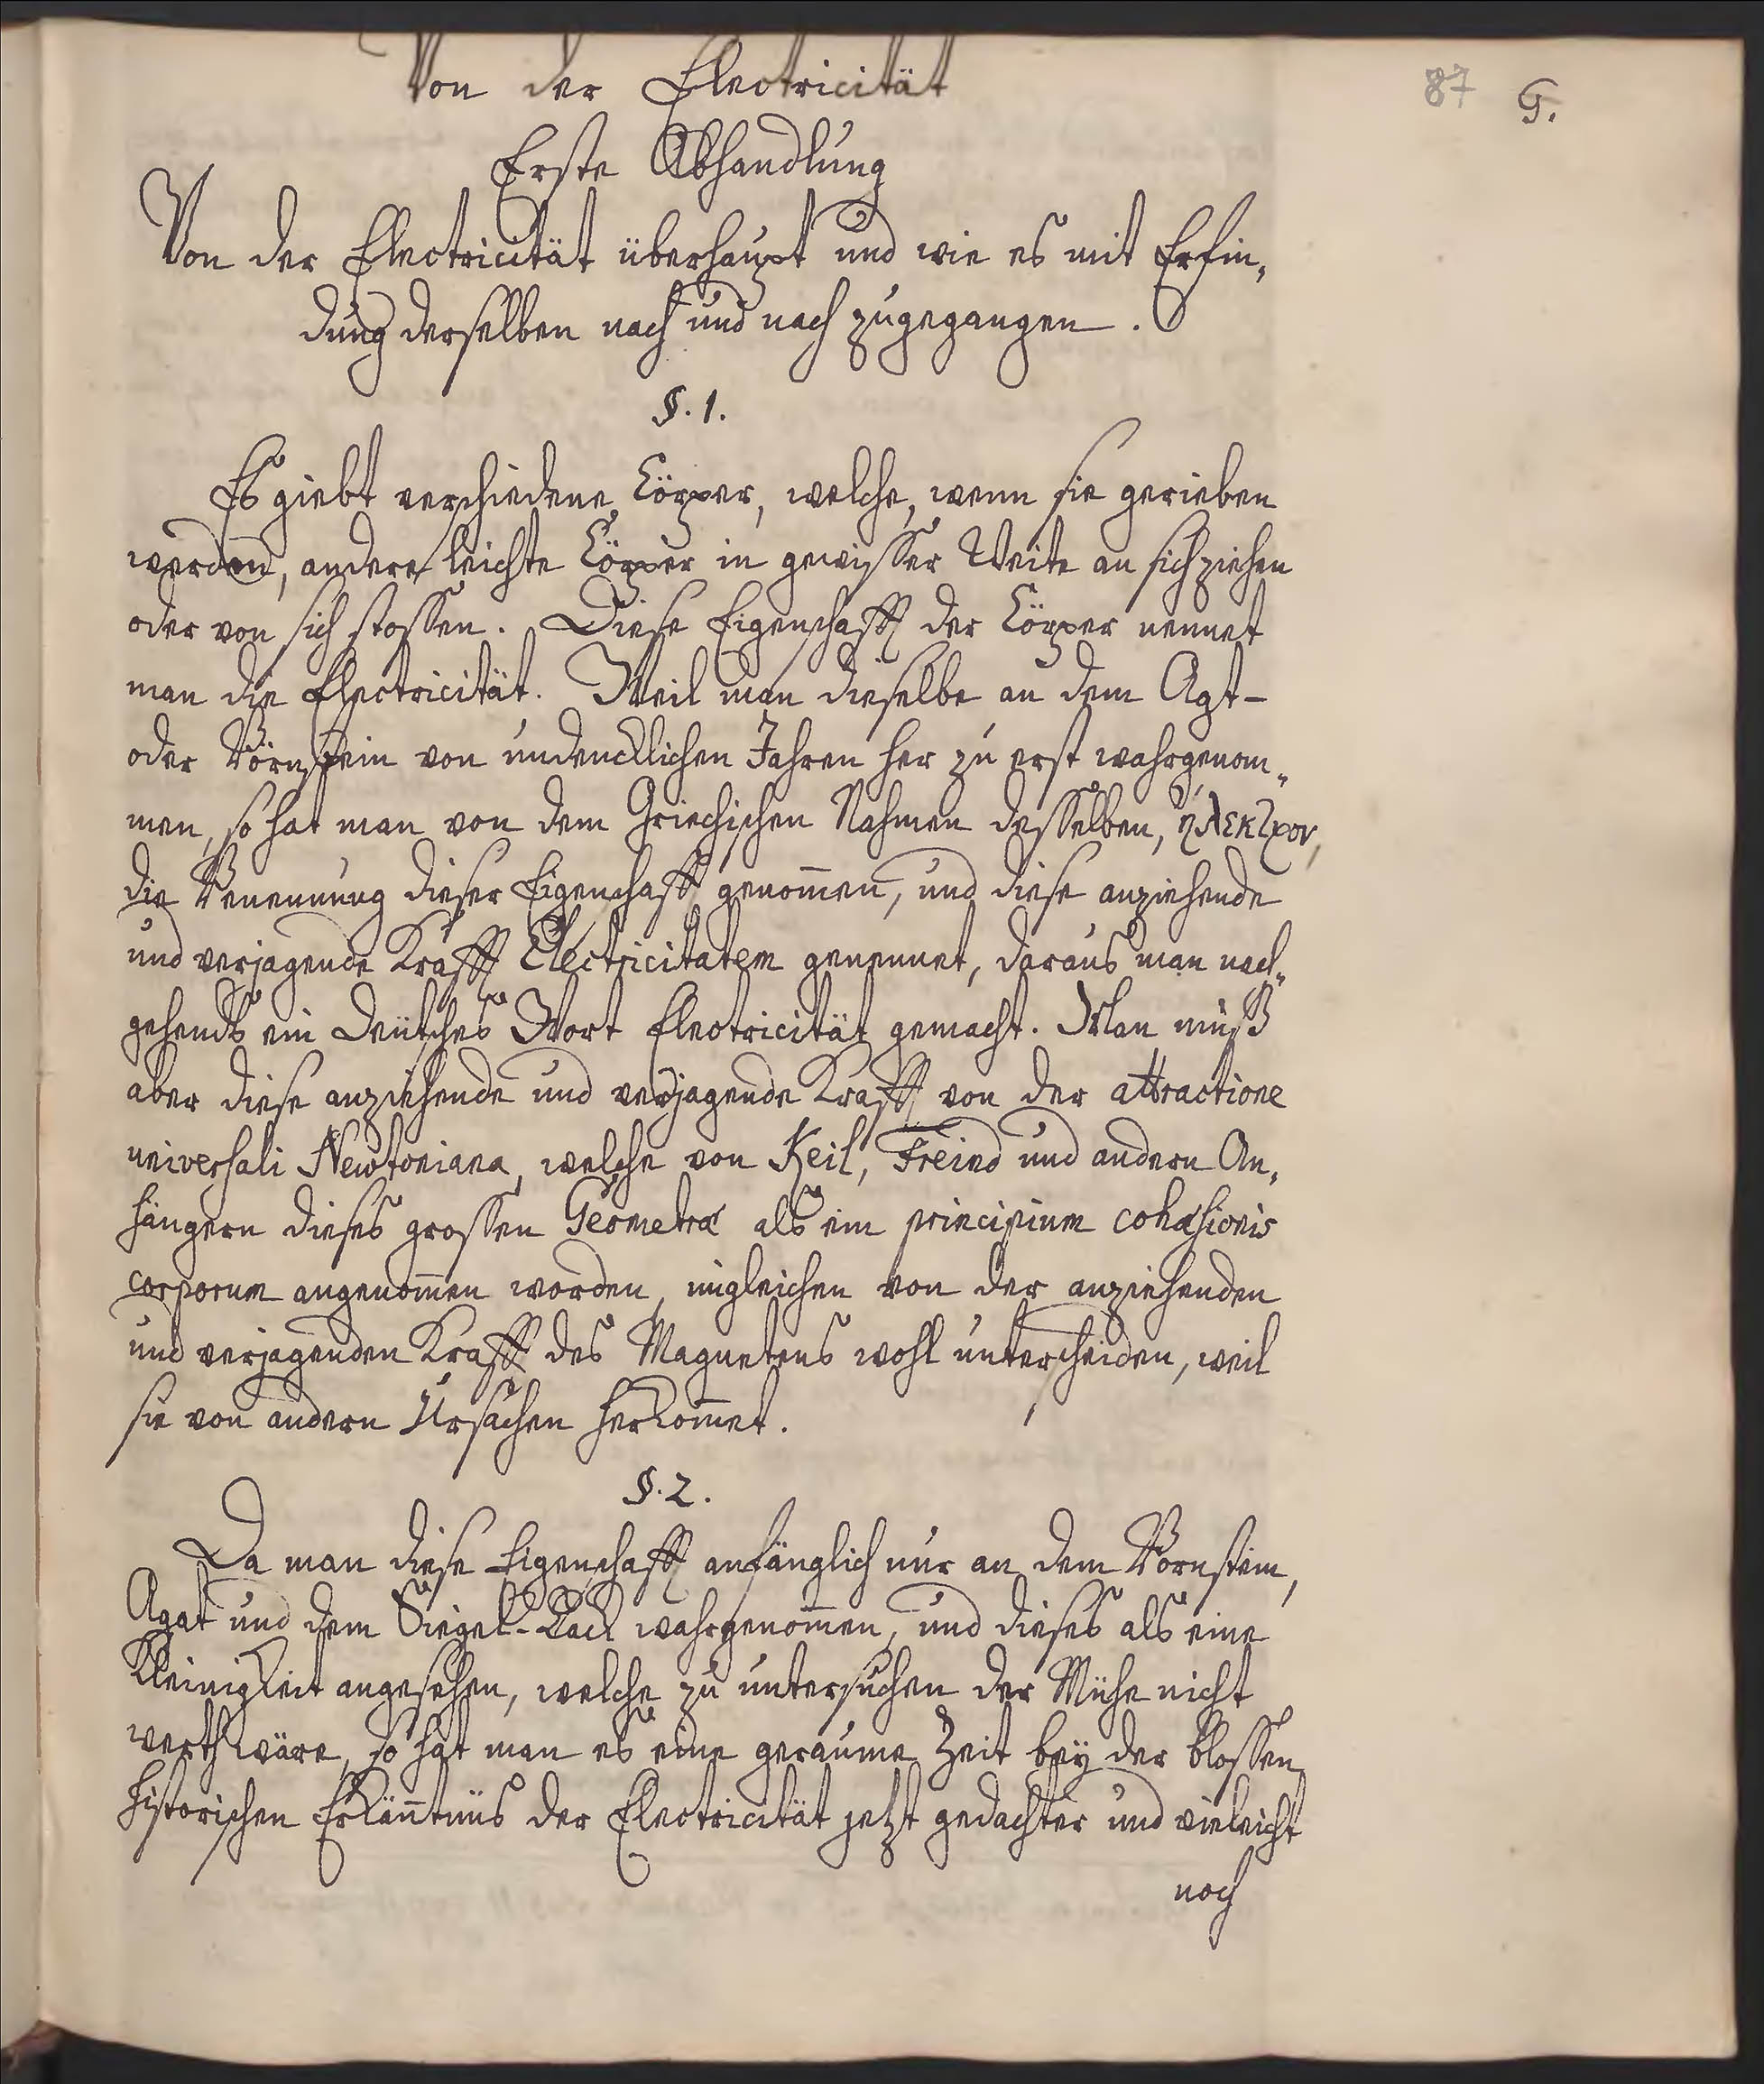 Von der Electricität
87 G.
Erste Abhandlung
Von der Electricität überhaupt und wie es mit Erfin„
dung derselben nach und nach zugegangen.
§. 1.
Es giebt verschiedene Cörper, welche, wenn sie gerieben
werden, andere leichte Cörper in gewisser Weite an sich ziehen
oder von sich stossen. Diese Eigenschafft der Cörper nennet
man die Electricität. Weil man dieselbe an dem Agt-
oder Börnstein von undencklichen Jahren her zu erst wahrgenom„
men, so hat man von dem Griechischen Nahmen desselben, ἠλεκτρον,
die Benennung dieser Eigenschafft genom̄en, und diese anziehende
und verjagende Krafft Electricitatem genennet, daraus man nach„
gehends ein deutsches Wort Electricität gemacht. Man muß
aber diese anziehende und verjagende Krafft von der attractione
universali Newtoniana, welche von Keil, Freind und andern An„
hängern dieses grossen Geometræ als ein principium cohæsionis
corporum angenom̄en worden, imgleichen von der anziehenden
und verjagenden Krafft des Magnetens wohl unterscheiden, weil
sie von andern Ursachen herkom̄et.
§. 2.
Da man diese Eigenschafft anfänglich nur an dem Bornstein,
Agat und dem Siegel-Lack wahrgenom̄en, und dieses als eine
Kleinigkeit angesehen, welche zu untersuchen der Mühe nicht
werth wäre, so hat man es eine geraume Zeit bey der blossen
historischen Erkän̄tnüs der Electricität jetzt gedachter und vieleicht
noch